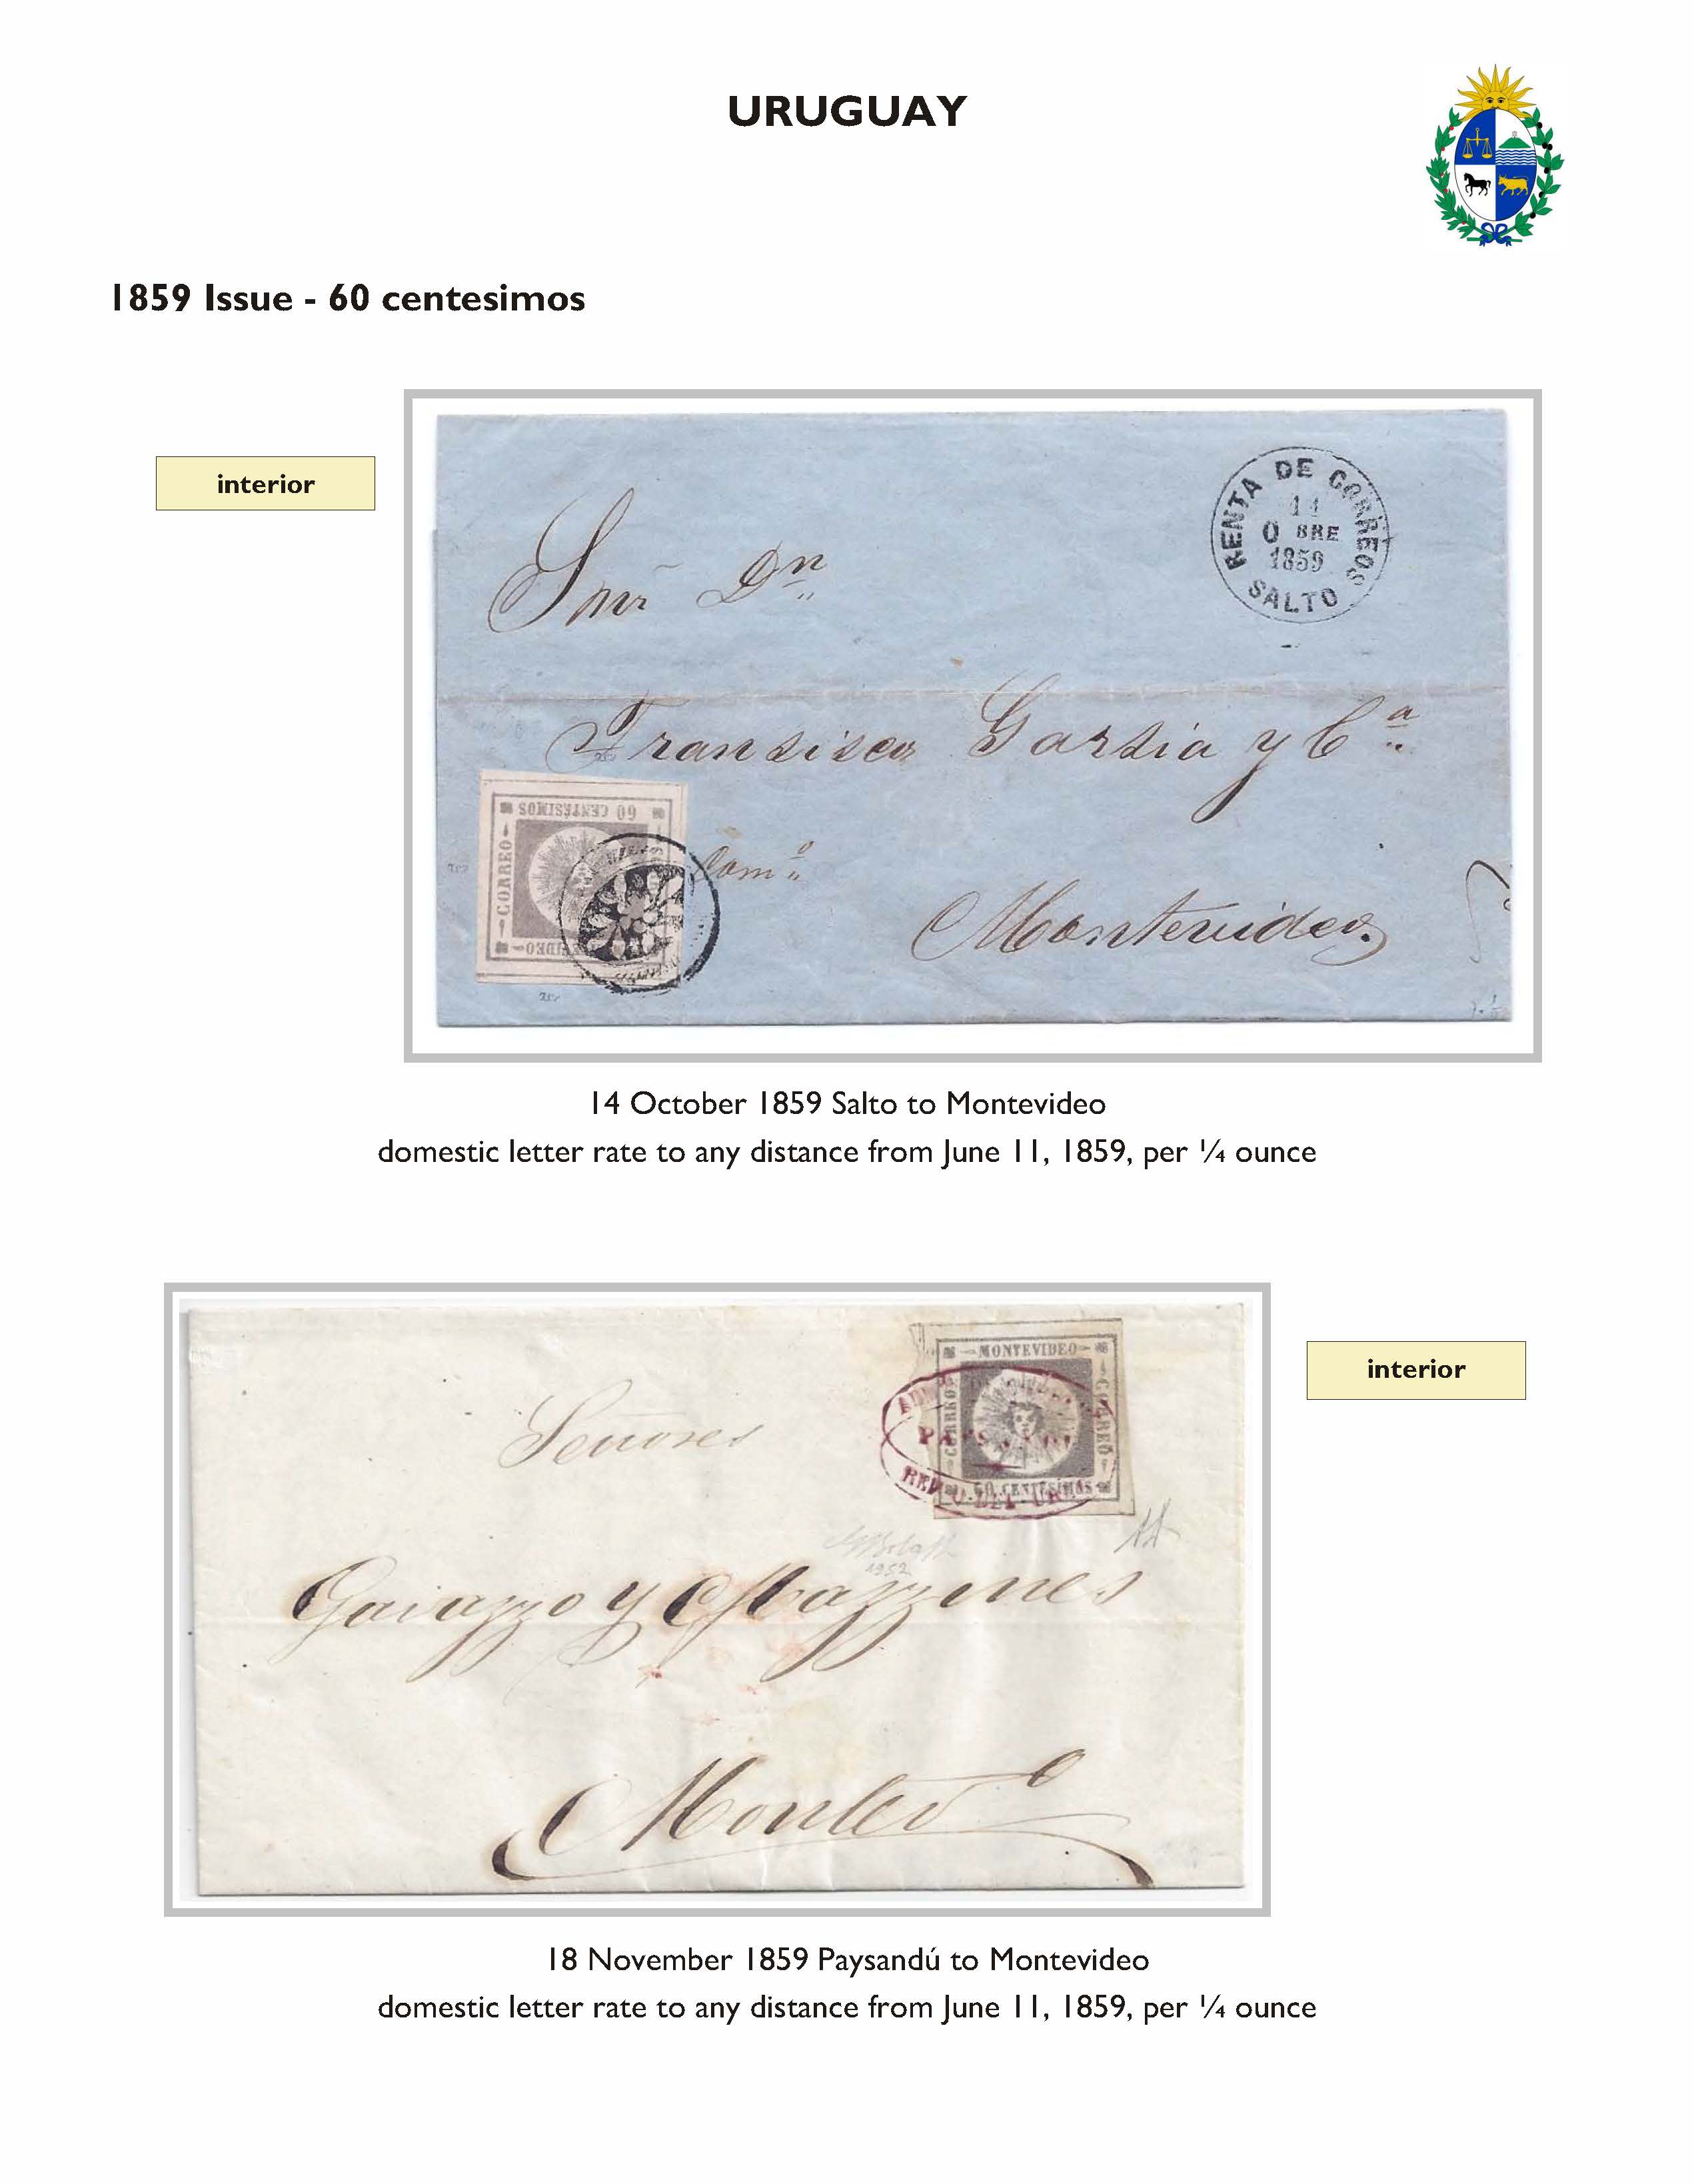 URUGUAY
1859 Issue - 60 centesimos
interior
RENTA DE CORREOS
14
O BRE
1859
SALTO
Snr Dn
Fransisco Garsia y Ca
60 CENTÉSIMOS
CORREO
Como
Montevideo
14 October 1859 Salto to Montevideo
domestic letter rate to any distance from June 11, 1859, per ¼ ounce
interior
MONTEVIDEO
CORREO
CORREO
60 CENTÉSIMOS
Señores
1952
Montevo
18 November 1859 Paysandú to Montevideo
domestic letter rate to any distance from June 11, 1859, per ¼ ounce